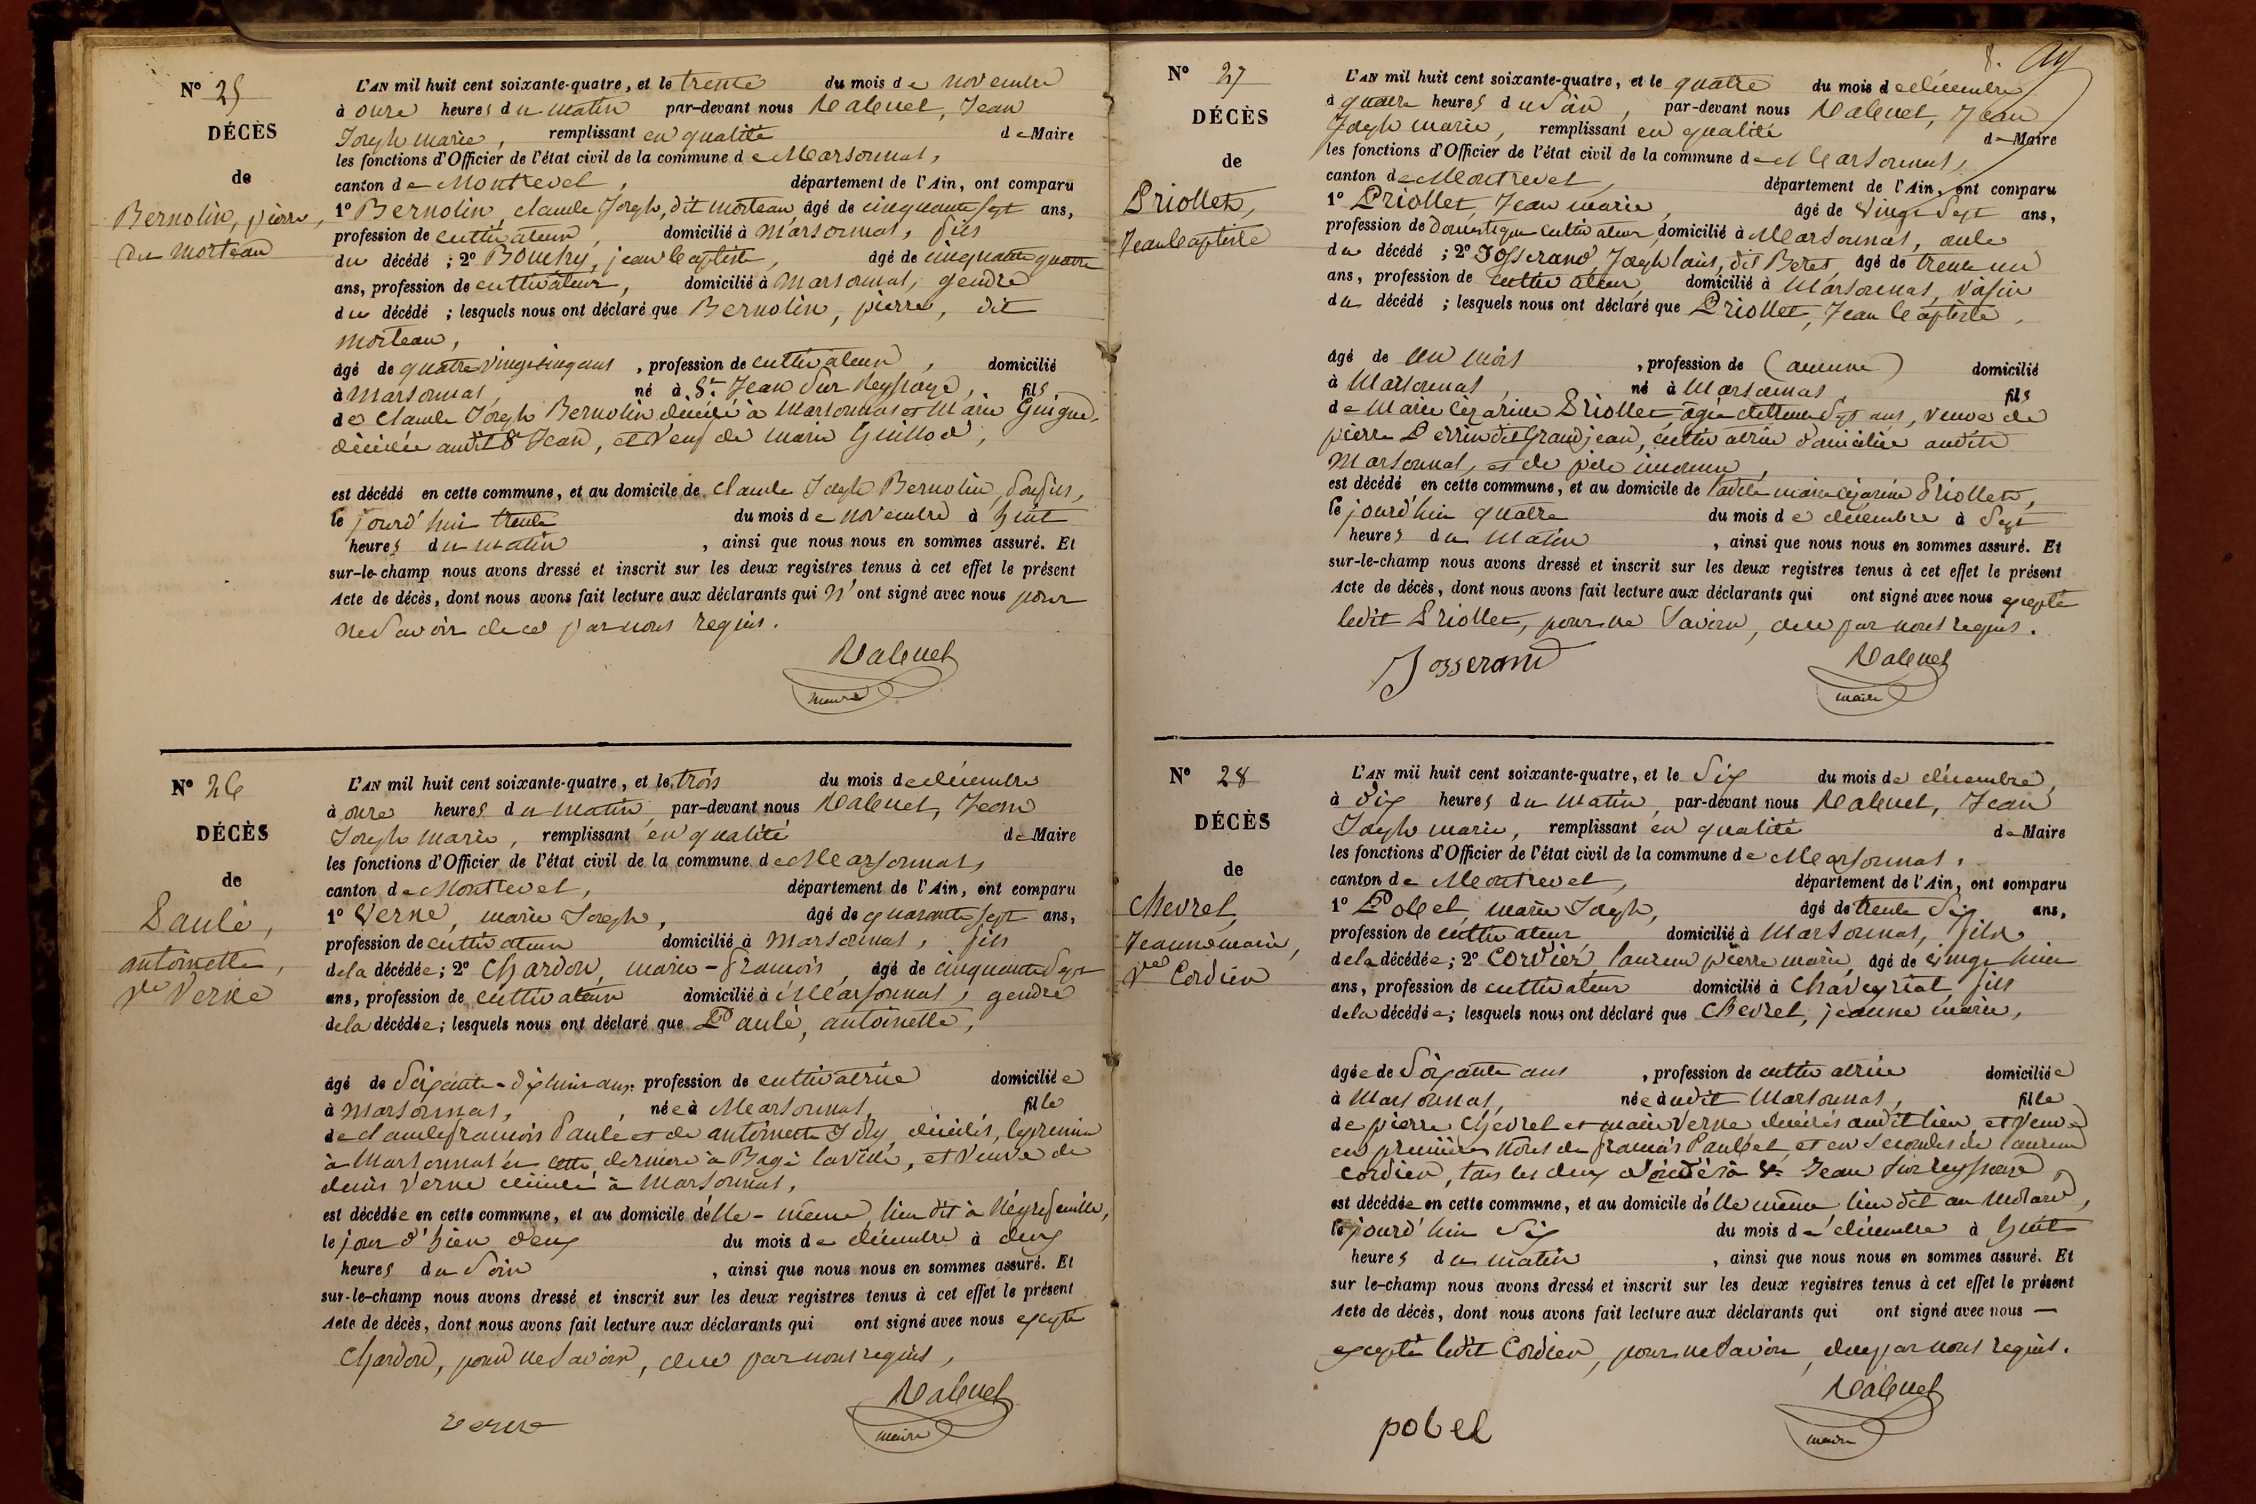 N° 25
DÉCÈS
de
Bernolin, pierre,
dit morteau
L'AN mil huit cent soixante-quatre, et le trente du mois de novembre
à onze heures du matin par-devant nous Rabuel, Jean
Joseph marie, remplissant en qualité de Maire
les fonctions d'Officier de l'état civil de la commune de Marsonnas,
canton de Montrevel, département de l'Ain, ont comparu
1° Bernolin, claude Joseph, dit morteau, âgé de cinquante sept ans,
profession de cultivateur, domicilié à Marsonnas, fils
du décédé ; 2° Bouchy, jean baptiste, âgé de cinquante quatre
ans, profession de cultivateur, domicilié à Marsonnas, gendre
du décédé ; lesquels nous ont déclaré que Bernolin, pierre, dit
morteau,
âgé de quatre vingt cinq ans, profession de cultivateur, domicilié
à Marsonnas, né à St Jean sur Reyssouze, fils
de claude Joseph Bernolin décédé à Marsonnas et Marie Guigue,
décédée audit St Jean, et veuf de marie Guillod,
est décédé en cette commune, et au domicile de claude Joseph Bernolin, son fils,
le jourd'hui trente du mois de novembre à huit
heures du matin, ainsi que nous nous en sommes assuré. Et
sur-le-champ nous avons dressé et inscrit sur les deux registres tenus à cet effet le présent
Acte de décès, dont nous avons fait lecture aux déclarants qui n'ont signé avec nous pour
ne savoir de ce par nous requis.
Rabuel
maire
N° 26
DÉCÈS
de
Paulé,
antoinette,
Ve Verne
L'AN mil huit cent soixante-quatre, et le trois du mois de décembre
à onze heures du matin, par-devant nous Rabuel, Jean
Joseph marie, remplissant en qualité de Maire
les fonctions d'Officier de l'état civil de la commune de Marsonnas,
canton de Montrevel, département de l'Ain, ont comparu
1° Verne, marie Joseph, âgé de quarante sept ans,
profession de cultivateur domicilié à Marsonnas, fils
de la décédée ; 2° Chardon, marie-françois, âgé de cinquante sept
ans, profession de cultivateur domicilié à Marsonnas, gendre
de la décédée ; lesquels nous ont déclaré que Paulé, antoinette,
âgé de soixante-dix huit ans, profession de cultivatrice domiciliée
à Marsonnas, née à Marsonnas, fille
de claude françois Paulé et de antoinette Joly, décédés, le premier
à Marsonnas et cette dernière à Bagé la ville, et veuve de
denis Verne décédé à Marsonnas,
est décédée en cette commune, et au domicile d'elle-même, lieu dit à Négrefeuille,
le jour d'hier deux du mois de décembre à deux
heures du soir, ainsi que nous nous en sommes assuré. Et
sur-le-champ nous avons dressé et inscrit sur les deux registres tenus à cet effet le présent
Acte de décès, dont nous avons fait lecture aux déclarants qui ont signé avec nous excepté
Chardon, pour ne savoir, de ce par nous requis,
Rabuel
verne
maire
8.
N° 27
DÉCÈS
de
Priollet,
Jean baptiste
L'AN mil huit cent soixante-quatre, et le quatre du mois de décembre
à quatre heures du soir, par-devant nous Rabuel, Jean
Joseph marie, remplissant en qualité de Maire
les fonctions d'Officier de l'état civil de la commune de Marsonnas,
canton de Montrevel, département de l'Ain, ont comparu
1° Priollet, Jean marie, âgé de vingt sept ans,
profession de domestique cultivateur, domicilié à Marsonnas, oncle
du décédé ; 2° Josserand Joseph louis, dit Beret, âgé de trente un
ans, profession de cultivateur, domicilié à Marsonnas, voisin
du décédé ; lesquels nous ont déclaré que Priollet, Jean baptiste,
âgé de un mois, profession de (aucune) domicilié
à Marsonnas, né à Marsonnas fils
de Marie Cézarine Priollet, âgée de trente sept ans, veuve de
pierre Perrin dit Grandjean, cultivatrice domiciliée audit
Marsonnas, et de père inconnu,
est décédé en cette commune, et au domicile de ladite marie cézarine Priollet,
le jourd'hui quatre du mois de décembre à sept
heures du matin, ainsi que nous nous en sommes assuré. Et
sur-le-champ nous avons dressé et inscrit sur les deux registres tenus à cet effet le présent
Acte de décès, dont nous avons fait lecture aux déclarants qui ont signé avec nous excepté
ledit Priollet, pour ne savoir, de ce par nous requis.
Josserand
Rabuel
maire
N° 28
DÉCÈS
de
Chevrel,
Jeanne marie,
Ve Cordier
L'AN mil huit cent soixante-quatre, et le six du mois de décembre,
à dix heures du matin, par-devant nous Rabuel, Jean
Joseph marie, remplissant en qualité de Maire
les fonctions d'Officier de l'état civil de la commune de Marsonnas,
canton de Montrevel, département de l'Ain, ont comparu
1° Pobel, marie Joseph, âgé de trente six ans,
profession de cultivateur domicilié à Marsonnas, fils
de la décédée ; 2° Cordier, laurent pierre marie, âgé de vingt huit
ans, profession de cultivateur domicilié à Chaveyriat, fils
de la décédée ; lesquels nous ont déclaré que Chevrel, jeanne marie,
âgée de soixante ans, profession de cultivatrice domiciliée
à Marsonnas, née audit Marsonnas, fille
de pierre Chevrel et marie Verne décédés audit lieu, et veuve
en premières noces de françois Paulbel, et en secondes de laurent
cordier, tous les deux décédés à St Jean sur Reyssouze,
est décédée en cette commune, et au domicile d'elle même lieu dit au Molard,
le jourd'hui six du mois de décembre à huit
heures du matin, ainsi que nous nous en sommes assuré. Et
sur le-champ nous avons dressé et inscrit sur les deux registres tenus à cet effet le présent
Acte de décès, dont nous avons fait lecture aux déclarants qui ont signé avec nous —
excepté ledit Cordier, pour ne savoir, de ce par nous requis.
Rabuel
pobel
maire